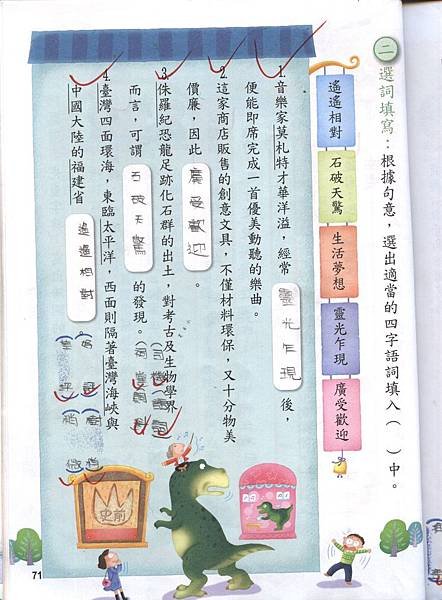 二 選詞填寫：根據句意，選出適當的四字語詞填入（　）中。
遙遙相對
石破天驚
生活夢想
靈光乍現
廣受歡迎
1.音樂家莫札特才華洋溢，經常 靈光乍現 後，
便能即席完成一首優美動聽的樂曲。
2.這家商店販售的創意文具，不僅材料環保，又十分物美
價廉，因此 廣受歡迎 。
3.侏羅紀恐龍足跡化石群的出土，對考古及生物學界
而言，可謂 石破天驚 的發現。
4.臺灣四面環海，東臨太平洋，西面則隔著臺灣海峽與
中國大陸的福建省 遙遙相對 。
史前
71